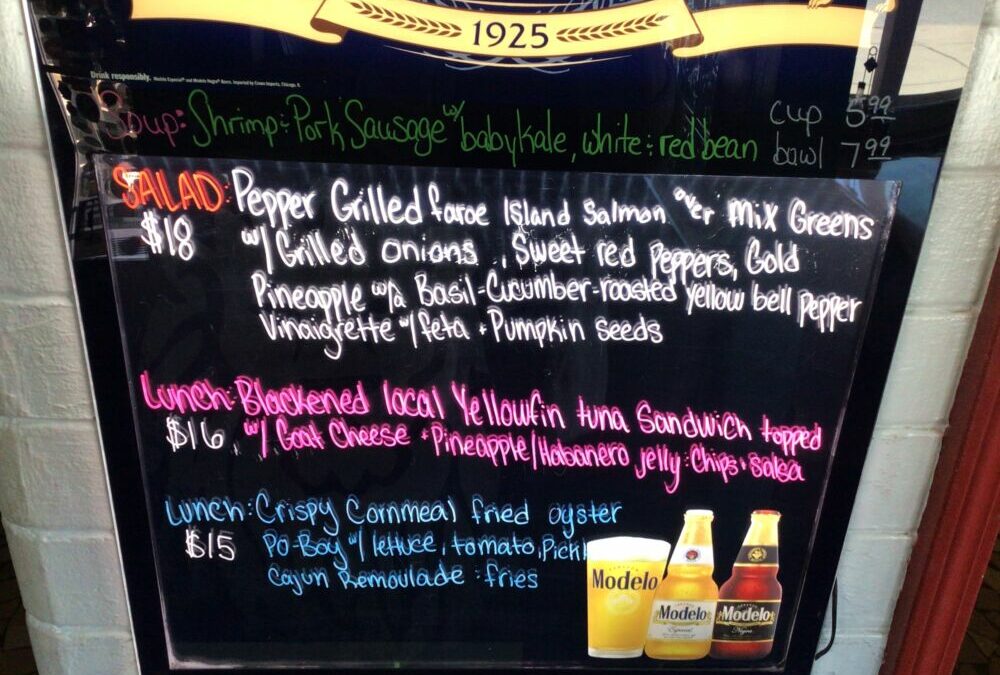 1925
Drink responsibly.
Soup: Shrimp + Pork Sausage w/ baby kale, white + red bean cup 5.99
bowl 7.99
SALAD: Pepper Grilled faroe Island Salmon over Mix Greens
$18 w/ Grilled onions, Sweet red Peppers, Gold
Pineapple w/a Basil-Cucumber-roasted yellow bell Pepper
Vinaigrette w/ feta + Pumpkin seeds
Lunch: Blackened local Yellowfin tuna Sandwich topped
$16 w/ Goat Cheese + Pineapple/Habanero jelly + Chips + salsa
Lunch: Crispy Cornmeal fried oyster
$15 Po-Boy w/ lettuce, tomato,
Cajun Remoulade + fries
Modelo
Modelo
Especial
Modelo
Negra